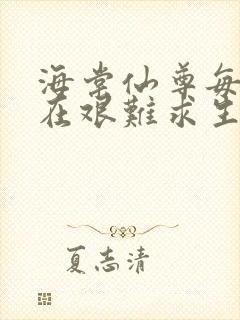 海棠仙尊每
在艰難求生
夏志清